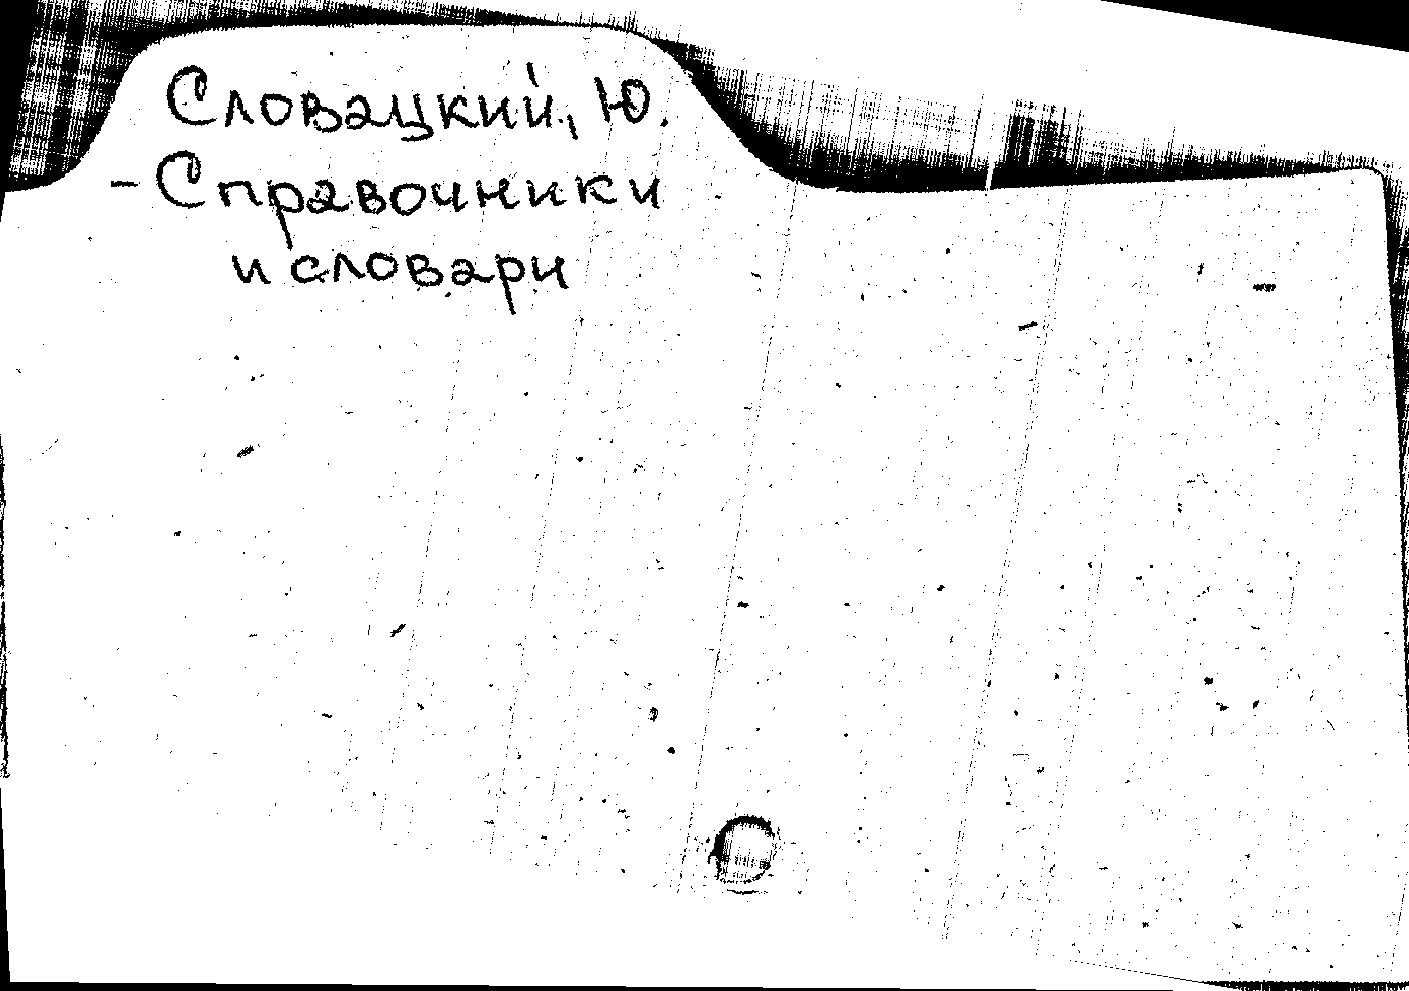 Словацкий, Ю.
- Справочники
и словари